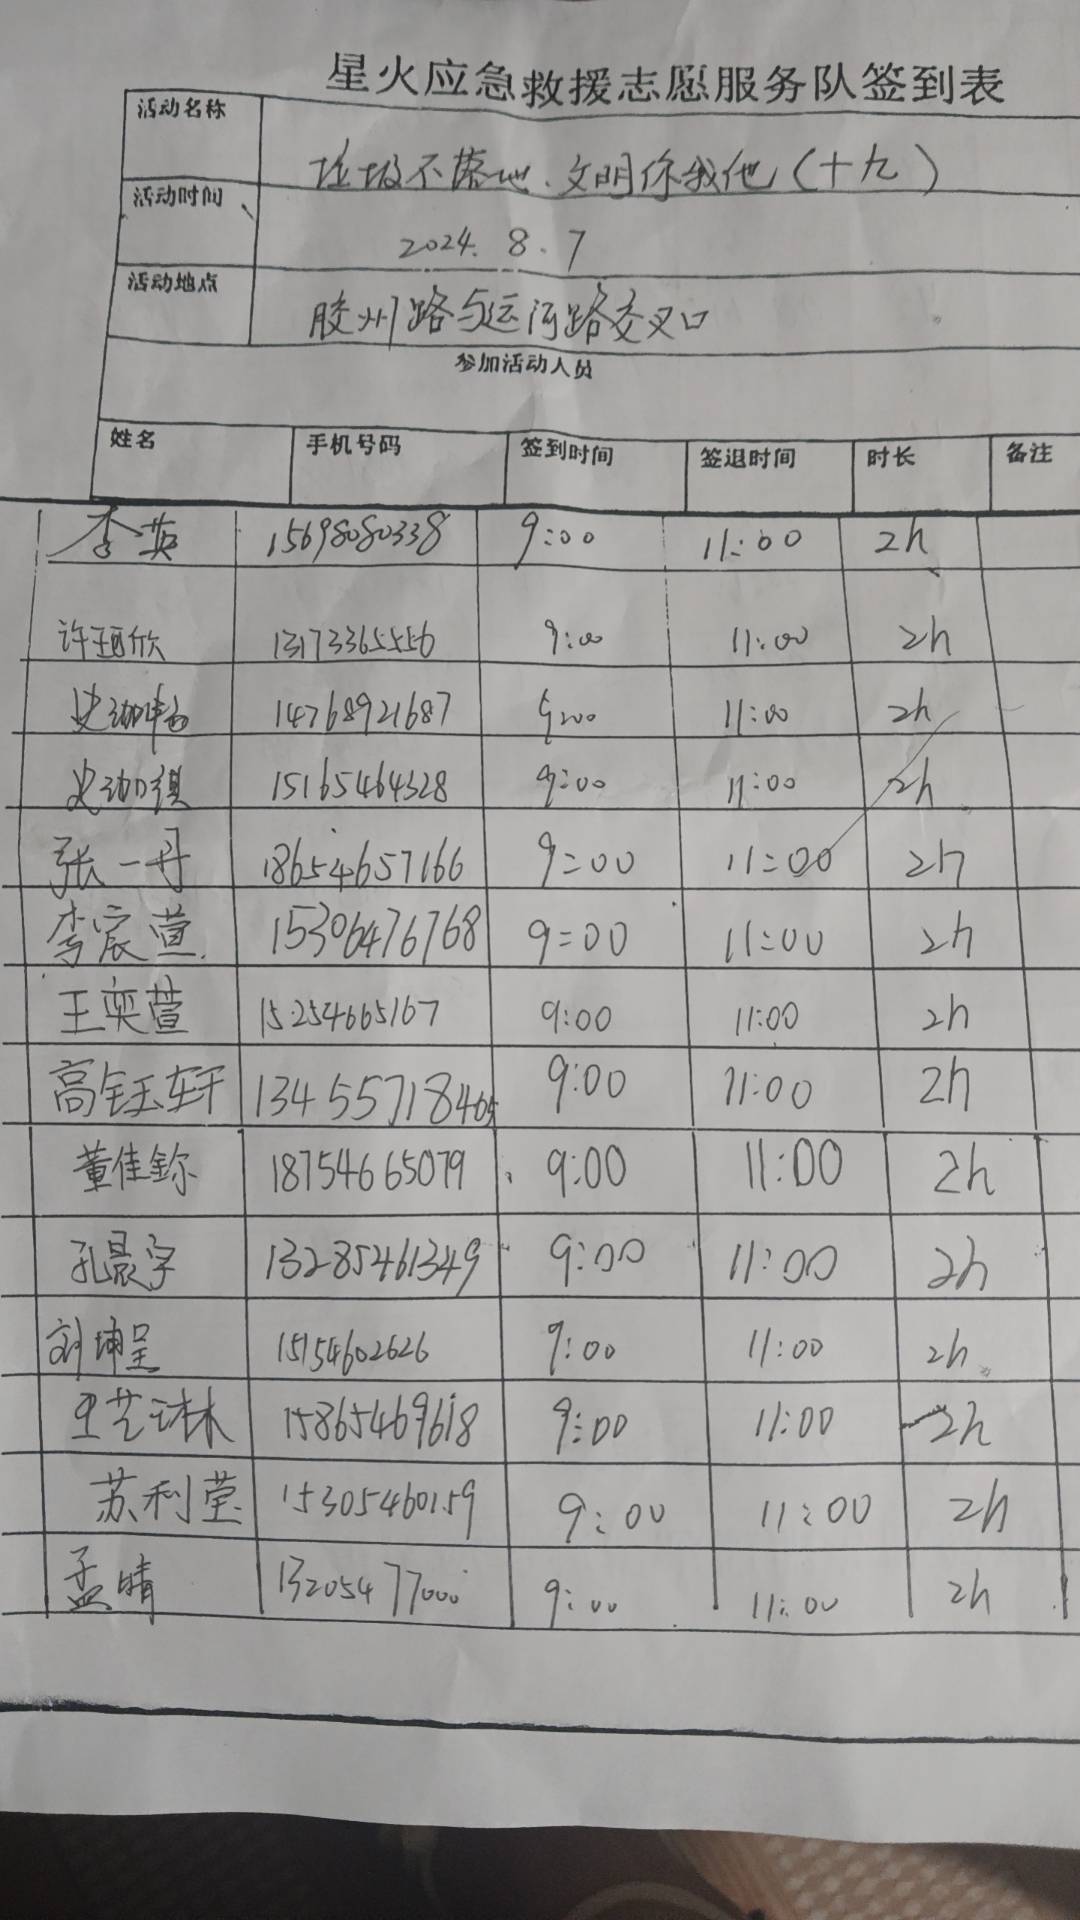 星火应急救援志愿服务队签到表
活动名称 垃圾不落地、文明你我他（十九）
活动时间 2024.8.7
活动地点 胶州路与运河路交叉口
参加活动人员
姓名 手机号码 签到时间 签退时间 时长 备注
李英 15698080338 9:00 11:00 2h
许珂欣 13173365556 9:00 11:00 2h
史珈 14768921687 9:00 11:00 2h
史珈祺 15165464328 9:00 11:00 2h
张一丹 18654657166 9:00 11:00 2h
李宸萱 15306476768 9:00 11:00 2h
王奕萱 15254665167 9:00 11:00 2h
高钰轩 13455718465 9:00 11:00 2h
董佳鉨 18754665079 9:00 11:00 2h
孔晨宇 13285461349 9:00 11:00 2h
刘坤呈 15154602626 9:00 11:00 2h
王艺琳 15865469618 9:00 11:00 2h
苏利莹 15305460159 9:00 11:00 2h
孟晴 13205477000 9:00 11:00 2h